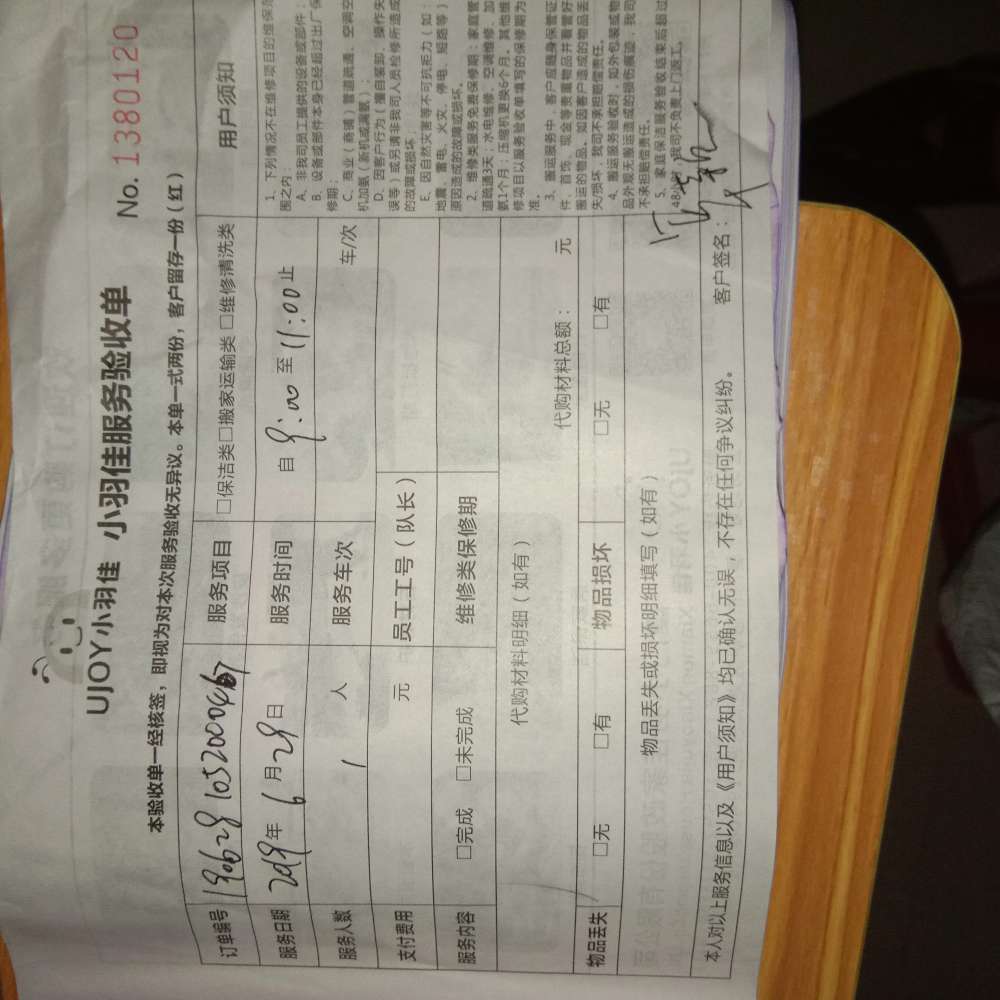 UJOY小羽佳 小羽佳服务验收单
No. 1380120
本验收单一经核签，即视为对本次服务验收无异议。本单一式两份，客户留存一份（红）
订单编号
服务项目 □保洁类□搬家运输类 □维修清洗类
服务日期 2019年 6月28日 服务时间 自 9:00 至 11:00止
服务人数 1 人 服务车次 车/次
支付费用 元 员工工号（队长）
服务内容 □完成 □未完成 维修类保修期
代购材料明细（如有） 代购材料总额： 元
物品丢失 □无 □有 物品损坏 □无 □有
物品丢失或损坏明细填写（如有）
本人对以上服务信息以及《用户须知》均已确认无误，不存在任何争议纠纷。 客户签名：
用户须知
1、下列情况不在维修项目的维保范
围之内：
A、非我司员工提供的设备或部件；
B、设备或部件本身已经超过出厂保
修期；
C、商业（商铺）管道疏通、空调空
机加氨（新机或漏氨）；
D、因客户行为（擅自装卸、操作失
误等）或另请非我司人员检修所造成
的故障或损坏；
E、因自然灾害等不可抗拒力（如：
地震、雷电、火灾、停电、短路等）
原因造成的故障或损坏。
2、维修类服务免费保修期：家庭管
道疏通3天；水电维修、空调维修、加
氨1个月；压缩机更换6个月。其他维
修项目以服务验收单填写的保修期为
准。
3、搬运服务中，客户应随身保管证
件、首饰、现金等贵重物品并看管好
搬运的物品。如因客户造成的物品丢
失或损坏，我司不承担赔偿责任。
4、搬运服务验收时，如外包装或物
品外观无搬运造成的损伤痕迹，我司
不承担赔偿责任。
5、家庭保洁服务验收结束后超过
48小时，我司不负责上门返工。